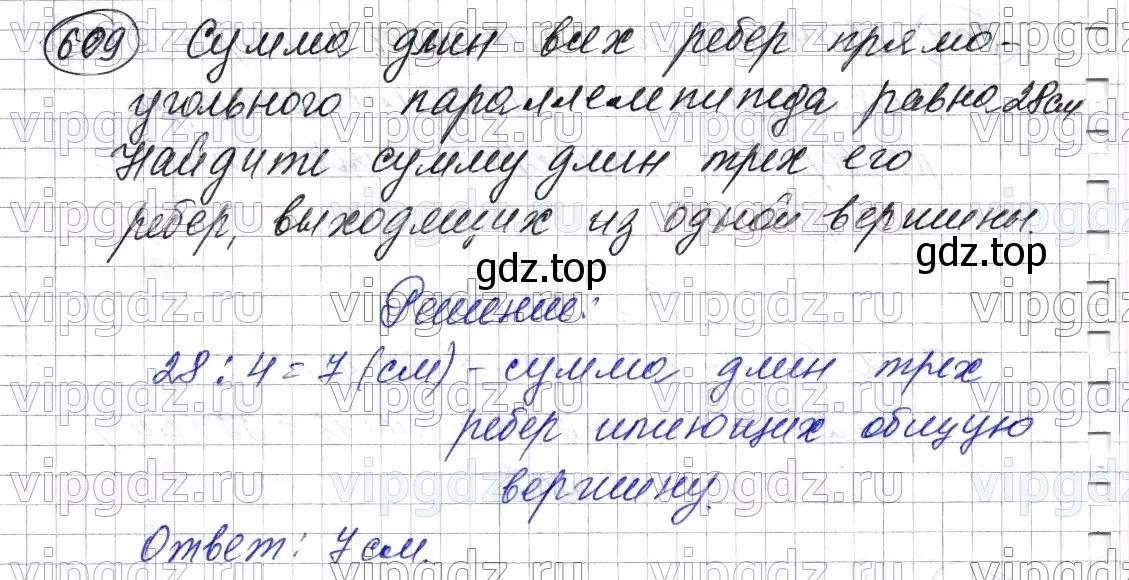 609 Сумма длин всех ребер прямо-
угольного параллелепипеда равна 28см
Найдите сумму длин трех его
ребер, выходящих из одной вершины.
gdz.top
Решение:
28 : 4 = 7 (см) - сумма длин трех
ребер имеющих общую
вершину.
Ответ: 7 см.
gdz.top